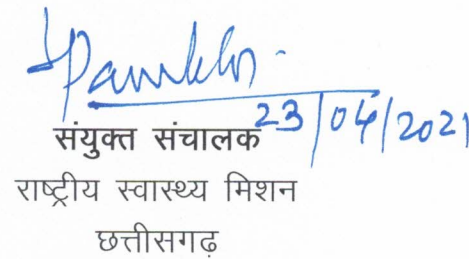 23/04/2021
संयुक्त संचालक
राष्ट्रीय स्वास्थ्य मिशन
छत्तीसगढ़